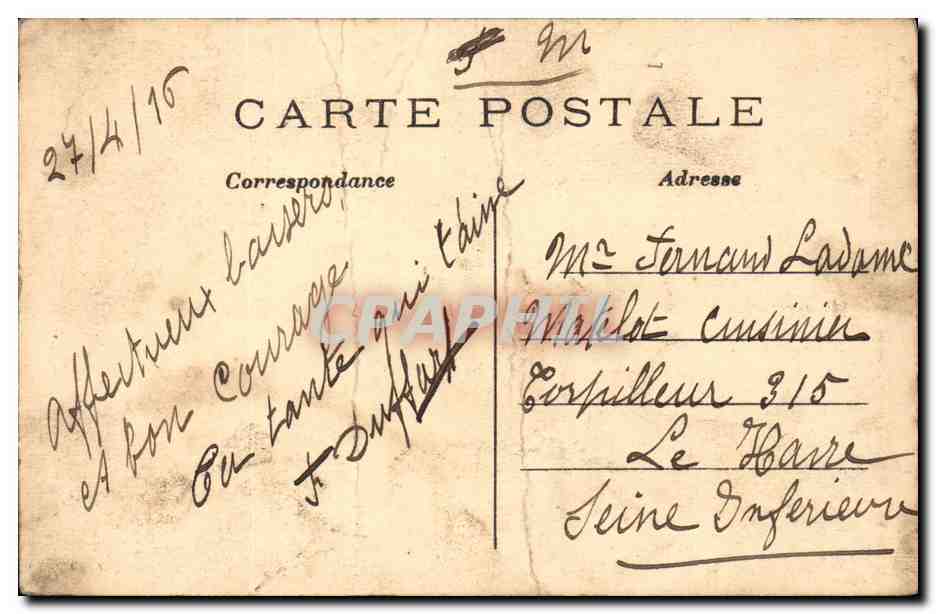 F M
CARTE POSTALE
27/4/16
Correspondance
Adresse
Affectueux baisers,
et bon courage
Ta tante qui t'aime
F. Duffart
Mr Fernand Ladame
Matelot Cuisinier
Torpilleur 315
Le Havre
Seine Inferieure
CAPHIL